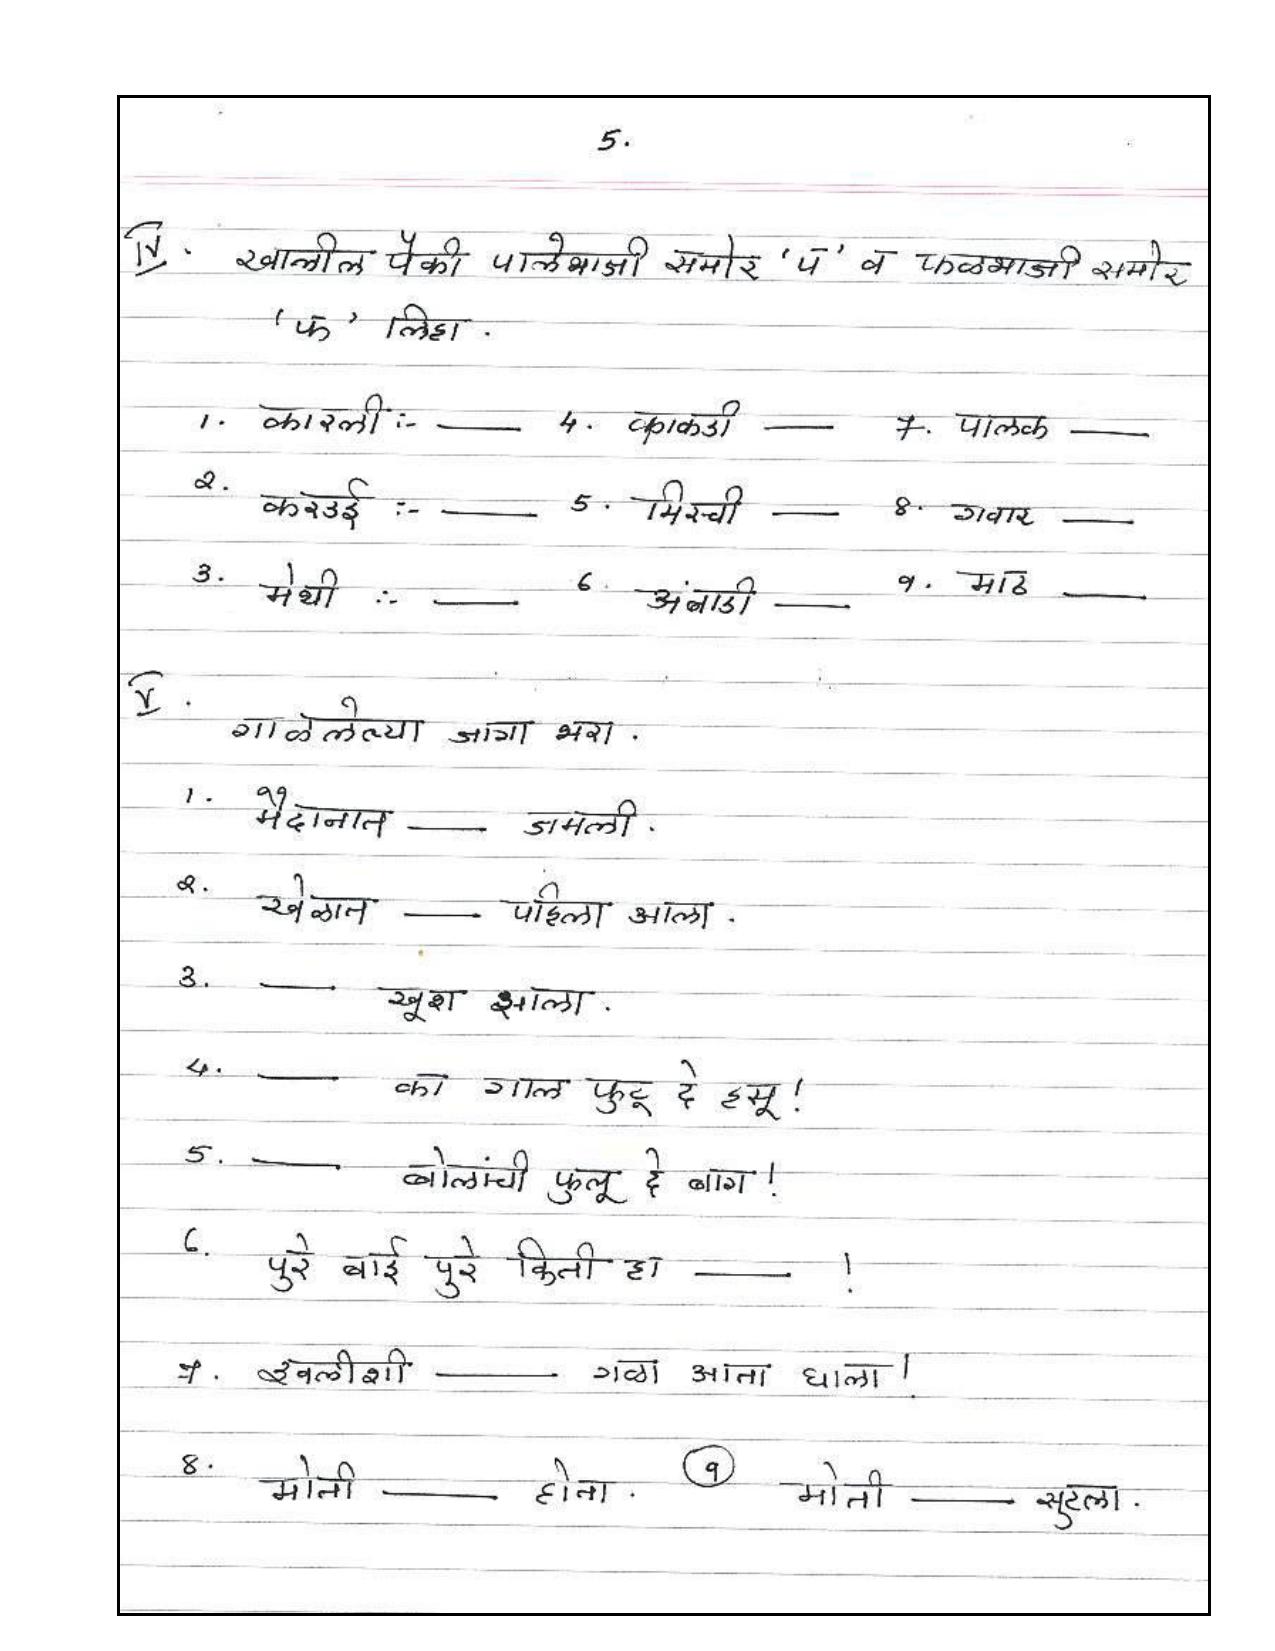 5.
IV. खालील पैकी पालेभाजी समोर 'प' व फळभाजी समोर
'फ' लिहा.
1. कारली :- —— 4. काकडी —— 7. पालक ——
2. करडई :- —— 5. मिरची —— 8. गवार ——
3. मेथी :- —— 6. अंबाडी —— 9. माठ ——
V. गाळलेल्या जागा भरा.
1. मैदानात —— जमली.
2. खेळात —— पहिला आला.
3. —— खूश झाला.
4. —— का गाल फुटू दे हसू!
5. —— बोलांची फुलू दे बाग!
6. पुरे बाई पुरे किती हा —— !
7. इवलीशी —— गळा आता घाला!
8. मोती —— होता. 9 मोती —— सुटला.